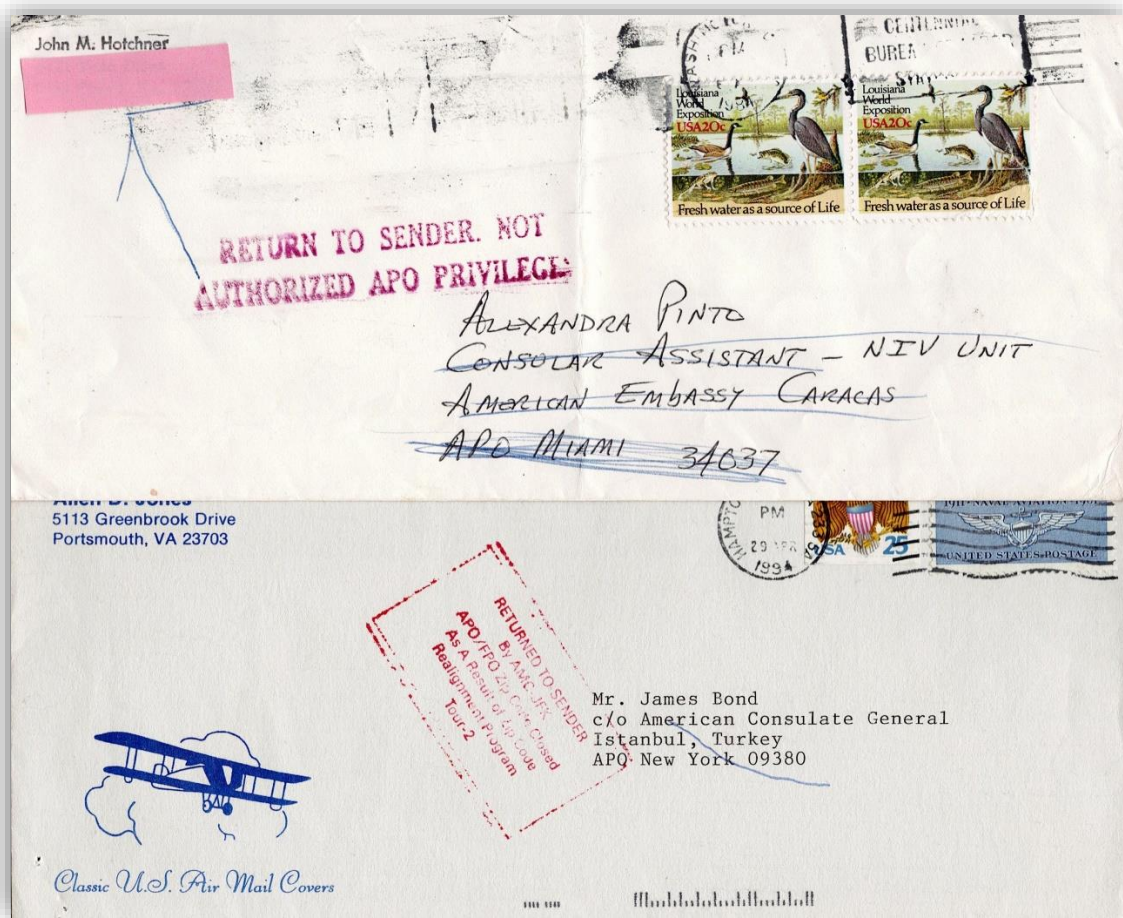 John M. Hotchner
CENTENNIAL
BUREA
Louisiana
World
Exposition
USA20c
Fresh water as a source of Life
Louisiana
World
Exposition
USA20c
Fresh water as a source of Life
RETURN TO SENDER. NOT
AUTHORIZED APO PRIVILEGE
ALEXANDRA PINTO
CONSULAR ASSISTANT – NIV UNIT
AMERICAN EMBASSY CARACAS
APO MIAMI 34037
Allen D. Jones
5113 Greenbrook Drive
Portsmouth, VA 23703
HAMPTO
PM
29 APR
1994
USA 25
NAVAL AVIATION
UNITED STATES POSTAGE
RETURNED TO SENDER
By AMC-JFK
APO/FPO Zip Code Closed
As A Result of Zip Code
Realignment Program
Tour-2
Mr. James Bond
c/o American Consulate General
Istanbul, Turkey
APO New York 09380
Classic U.S. Air Mail Covers